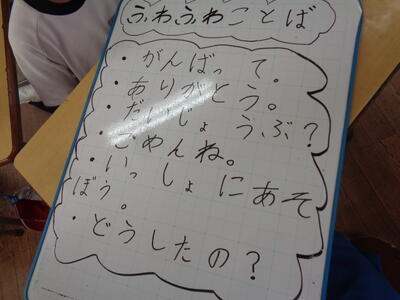 ふわふわことば
・がんばって。
・ありがとう。
・だいじょうぶ?
・ごめんね。
・いっしょにあそ
ぼう。
・どうしたの?